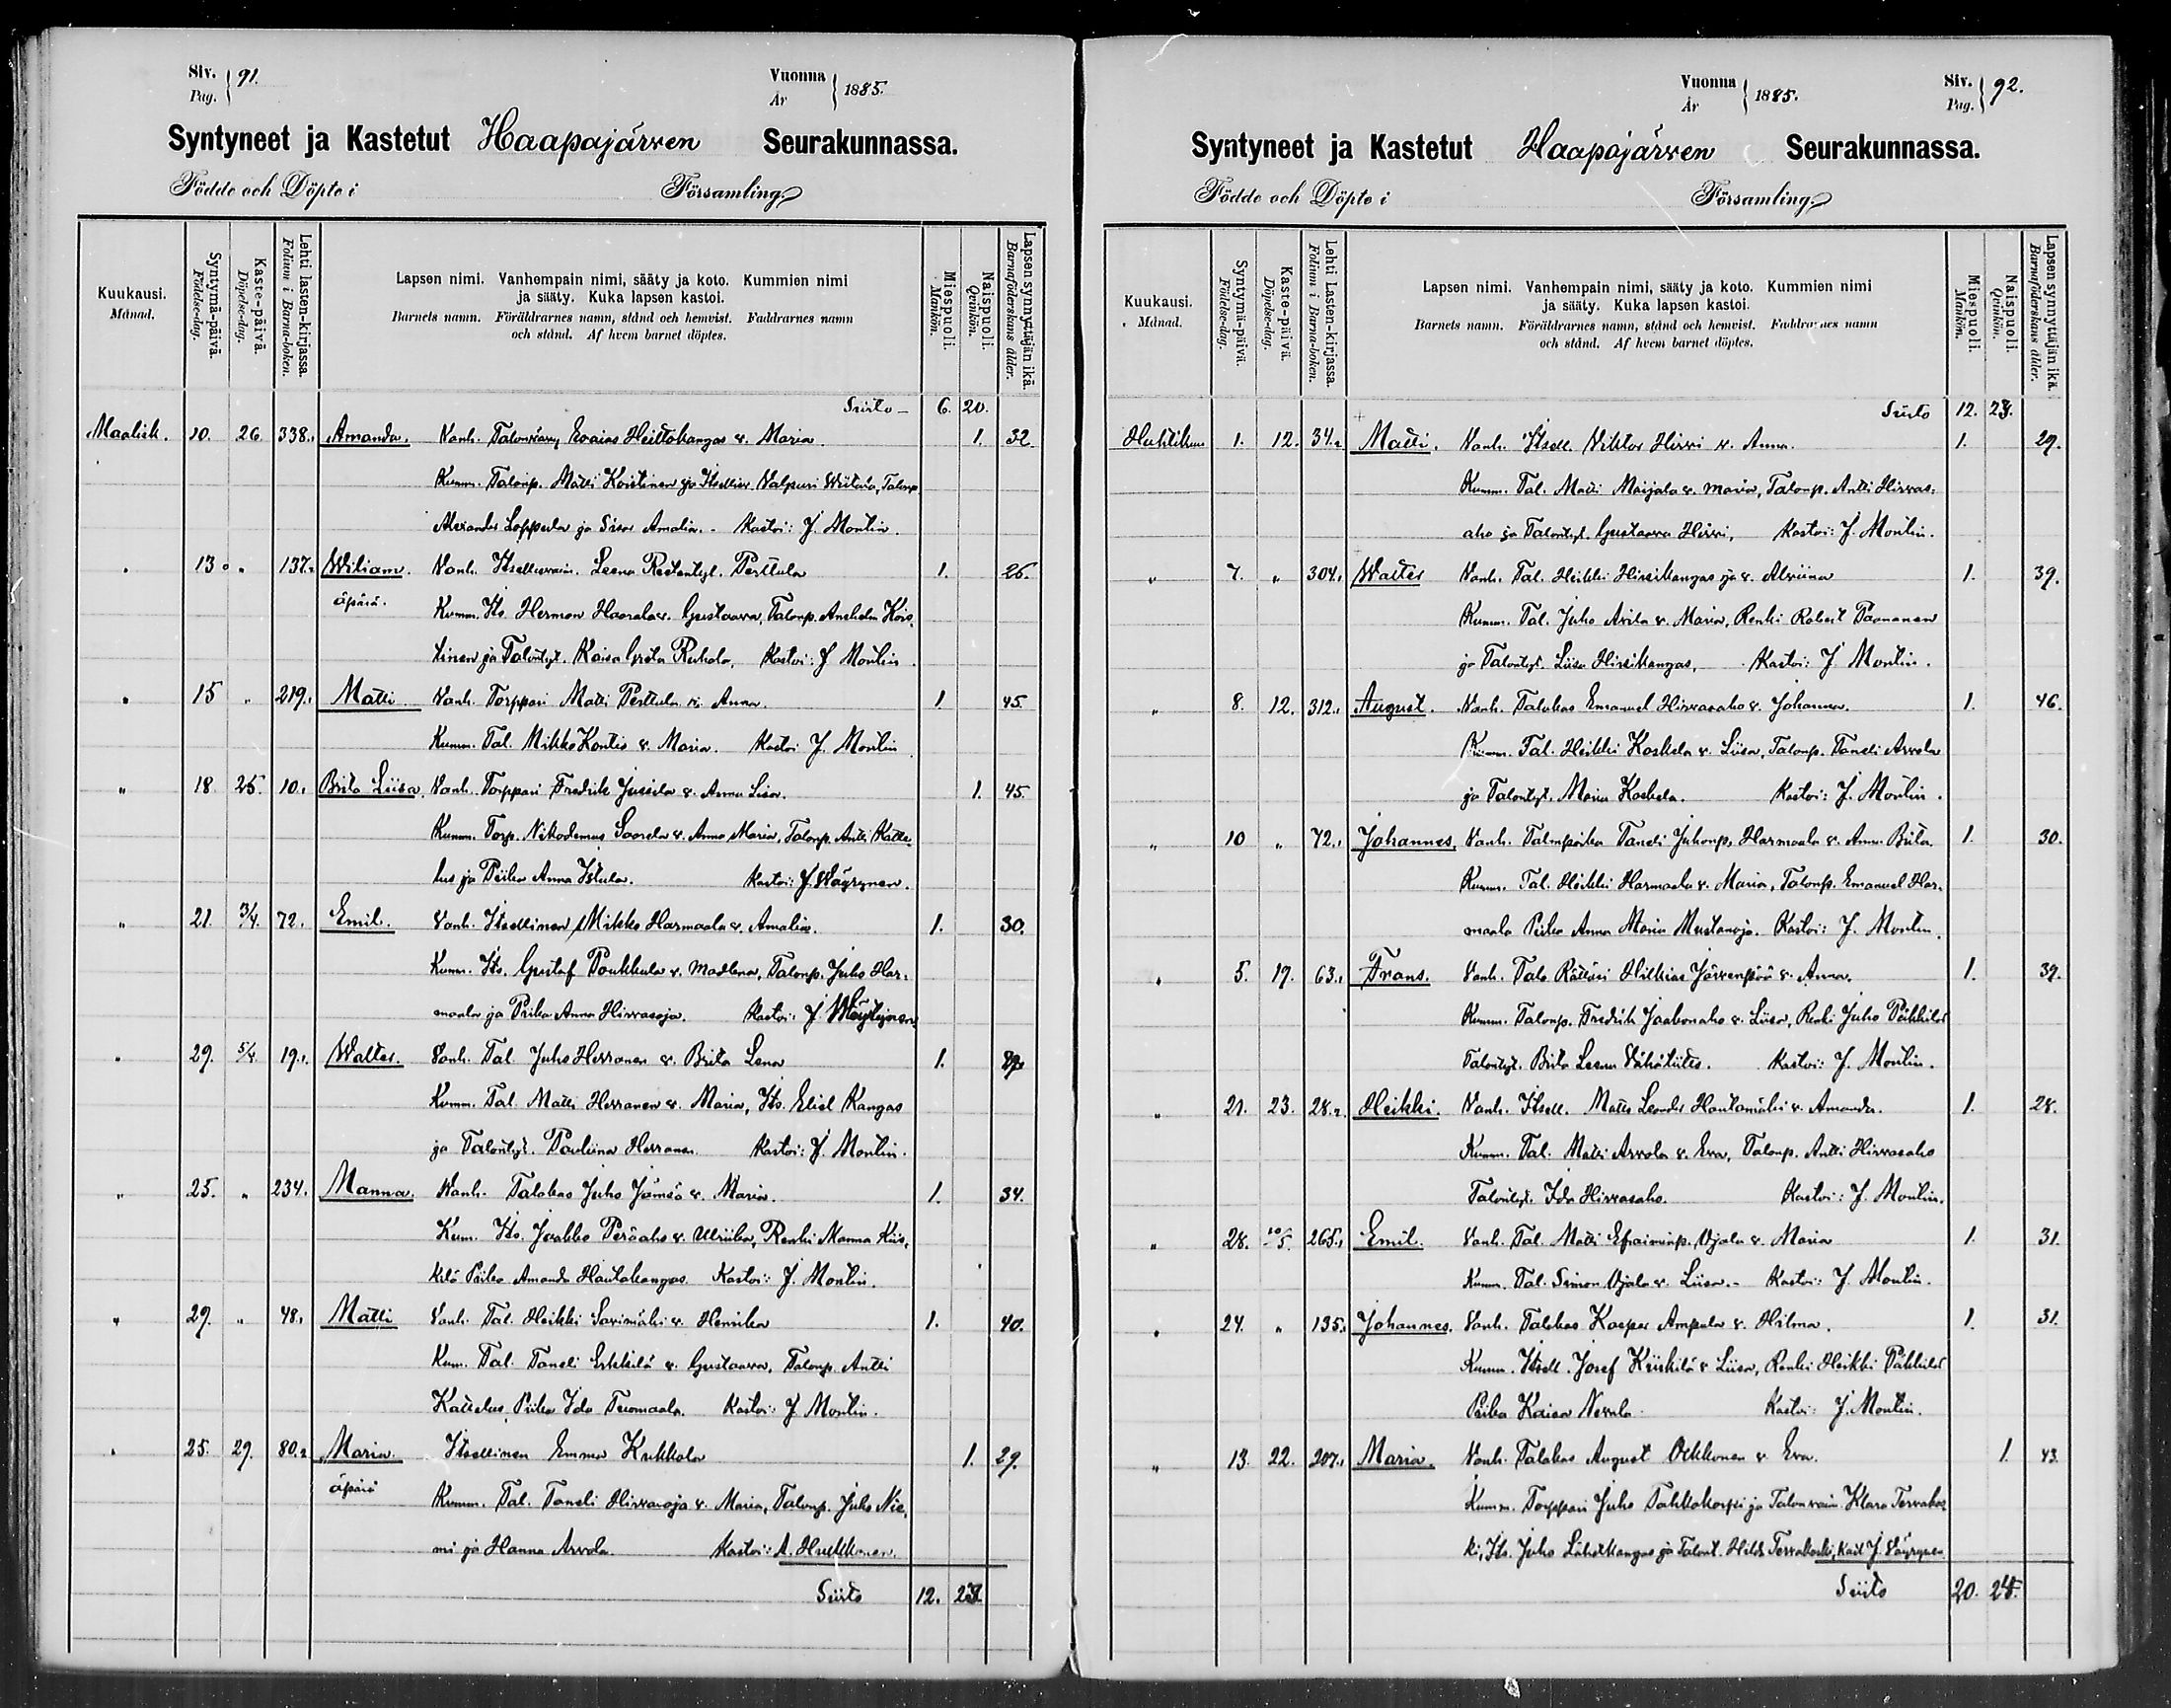 Siv. Pag. } 91. Vuonna År } 1885.
Syntyneet ja Kastetut Haapajärven Seurakunnassa.
Födde och Döpte i Församling.
Kuukausi. Månad.
Syntymä-päivä. Födelse-dag.
Kaste-päivä. Döpelse-dag.
Lehti lasten-kirjassa. Folium i Barna-boken.
Lapsen nimi. Vanhempain nimi, sääty ja koto. Kummien nimi
ja sääty. Kuka lapsen kastoi.
Barnets namn. Föräldrarnes namn, stånd och hemvist. Faddrarnes namn
och stånd. Af hvem barnet döptes.
Miespuoli. Mankön.
Naispuoli. Qvinkön.
Lapsen synnyttäjän ikä. Barnaföderskans ålder.
Siirto - 6. 20.
Maalisk. 10. 26 338. Amanda. Vanh. Esaias Heittokangas v. Maria. 1. 32
Kumm. Talonp. Matti Koistinen ja Valpuri Talonp
Alexander Loppula ja Sisar Amalia. - Kastoi: J. Montin.
" 13 " 137. Wiliam. Vanh. Leena Perttula 1. 26.
äpärä. Kumm. Its. Herman Haarala v. Gustaava, Talonp. Anshelm Kois-
tinen ja Talontyt. Kaisa Greta Kastoi: J Montin
" 15 " 219. Matti Vanh. Torppari Matti Perttula v. Anna. 1 45.
Kumm. Tal. Mikko Kontio v. Maria. Kastoi J. Montin
" 18 25. 10. Brita Liisa. Vanh. Torppari Fredrik Jussila v. Anna Lisa. 1. 45.
Kumm. Torp. Nikodemus Saarela v. Anna Maria, Talonp. Antti Katte-
lus ja Piika Anna Kastoi: J. Wäyrynen.
" 21. 3/4. 72. Emil. Vanh. Itsellinen Mikko Harmaala v. Amalia. 1. 30.
Kumm. Its. Gustaf Poukkula v. Madlena, Talonp. Juho Har-
maala ja Piika Anna Hirvasoja. Kastoi: J Wäyrynen
" 29. 5/4 19. Walter. Vanh. Tal Juho Herranen v. Brita Lena 1.
Kumm. Tal. Matti Herranen v. Maria, Its. Eliel Kangas
ja Talontyt. Pauliina Herranen. Kastoi: J. Montin.
" 25. " 234. Manna. Vanh. Talokas Juho Jämsä v. Maria. 1. 34.
Kum. Its. Jaakko Peräaho v. Ulriika, Renki Manna Kiis-
kilä Piika Amanda Hautakangas. Kastoi: J. Montin.
" 29. " 48. Matti Vanh. Tal. Heikki Savimäki v. Henrika 1. 40.
Kum. Tal. Taneli Erkkilä v. Gustaava, Talonp. Antti
Kattelus, Piika Ida Tuomaala. Kastoi: J Montin.
" 25. 29. 80. Maria. Itsellinen Emma Kukkola 1. 29.
äpärä Kumm. Tal. Taneli Hirvasoja v. Maria, Talonp. Juho Nie-
mi ja Hanna Arvola. Kastoi: A. Hukkonen.
Siirto 12. 23.
Vuonna År } 1885. Siv. Pag. } 92.
Syntyneet ja Kastetut Haapajärven Seurakunnassa.
Födde och Döpte i Församling.
Kuukausi. Månad.
Syntymä-päivä. Födelse-dag.
Kaste-päivä. Döpelse-dag.
Lehti Lasten-kirjassa. Folium i Barna-boken.
Lapsen nimi. Vanhempain nimi, sääty ja koto. Kummien nimi
ja sääty. Kuka lapsen kastoi.
Barnets namn. Föräldrarnes namn, stånd och hemvist. Faddrarnes namn
och stånd. Af hvem barnet döptes.
Miespuoli. Mankön.
Naispuoli. Qvinkön.
Lapsen synnyttäjän ikä. Barnaföderskans ålder.
Siirto 12. 23.
Huhtikuu 1. 12. 34. Matti. Vanh. Itsell. Viktor Hirvi v. Anna. 1. 29.
Kumm. Tal. Matti Maijala v. Maria, Talonp. Antti Hirvas-
aho ja Talontyt. Gustaava Hirvi, Kastoi: J. Montin.
" 7. " 304. Walter Vanh. Tal. Heikki Hirsikangas ja v. Alviina 1. 39.
Kumm. Tal. Juho Avila v. Maria, Renki Robert Paananen
ja Talontyt. Liisa Hirsikangas, Kastoi: J. Montin.
" 8. 12. 312. August. Vanh. Talokas Emanuel Hirvasaho v. Johanna. 1. 46.
Kumm. Tal. Heikki Koskela v. Liisa, Talonp. Taneli Arvola
ja Talontyt. Maria Koskela. Kastoi: J. Montin.
" 10 " 72. Johannes, Vanh. Talonpoika Taneli Juhonp. Harmaala v. Anna Brita. 1. 30.
Kumm. Tal. Heikki Harmaala v. Maria, Talonp. Emanuel Har-
maala Piika Anna Maria Mustanoja. Kastoi: J. Montin.
" 5. 19. 63. Frans. Vanh. Talo Räätäri Hilkias Järvenpää v. Anna. 1. 39.
Kumm. Talonp. Fredrik Jaakonaho v. Liisa, Renki Juho Pihkilä
Talontyt. Brita Leena Vähätiitto. Kastoi: J. Montin.
" 21. 23. 28. Heikki. Vanh. Itsell. Matts Leander Hautamäki v. Amanda. 1. 28.
Kumm. Tal. Matti Arvola v. Eva, Talonp. Antti Hirvasaho
Talontyt. Ida Hirvasaho. Kastoi: J. Montin.
" 28. 10/5. 265. Emil. Vanh. Tal. Matti Efraiminp. Ojala v. Maria 1. 31.
Kumm. Tal. Simon Ojala v. Liisa. - Kastoi: J. Montin.
" 24. " 135. Johannes. Vanh. Talokas Kasper Ampula v. Hilma. 1. 31.
Kumm. Itsell. Josef Kiiskilä v. Liisa, Renki Heikki
Piika Kaisa Nevala. Kastoi: J. Montin.
" 13. 22. 207. Maria. Vanh. Talokas August Okkonen v. Eva. 1. 43.
Kumm. Torppari Juho Tahkokorpi ja Talonvaim. Klara Tervakos-
ki, Its. Juho Lähetkangas ja Talont. Hilda Tervakoski, Kast J. Väyrynen
Siirto 20. 24.